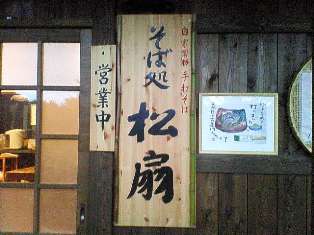 自家製粉 手打そば
そば処
松扇
営業中